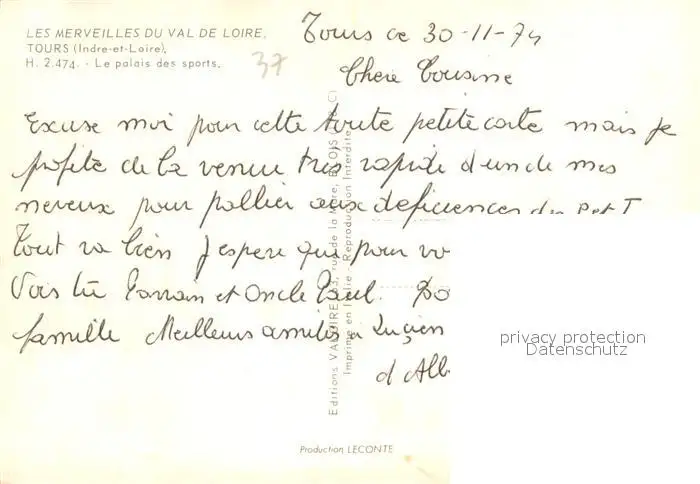 LES MERVEILLES DU VAL DE LOIRE.
TOURS (Indre-et-Loire).
H. 2.474. - Le palais des sports.
37
Tours ce 30-11-74
Chere Cousine
Excuse moi pour cette toute petite carte mais je
profite de la venue très rapide d'un de mes
neveux pour pallier aux deficiences des P et T
Tout va bien J'espere que pour vo
Vois tu Parrain et Oncle Paul.
famille Meilleurs amitiés a Lucien
d Alb
Imprimé en Italie - Reproduction Interdite
Production LECONTE
privacy protection
Datenschutz